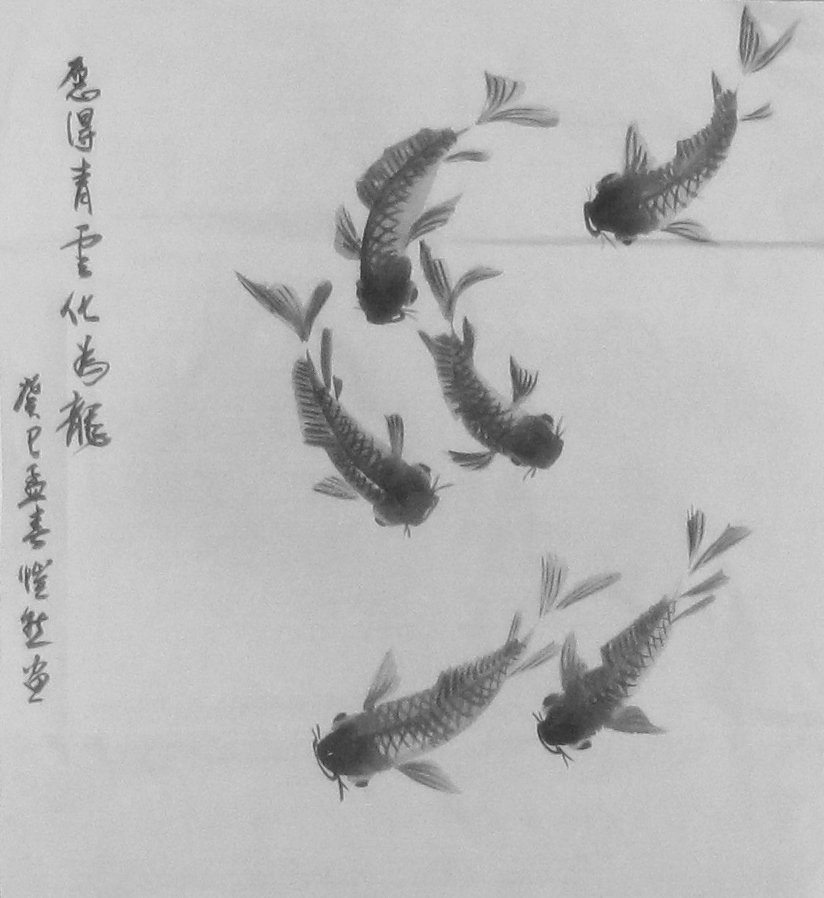 愿得青雲化為龍
癸巳孟春愷然畫